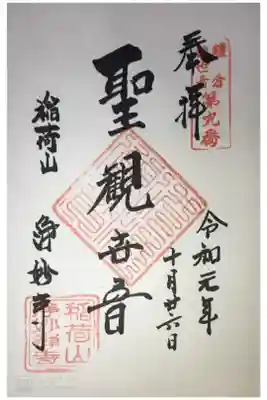 奉拝
鎌倉
第九番
令和元年
十月廿六日
聖観世音
稲荷山
浄妙寺
稲荷山